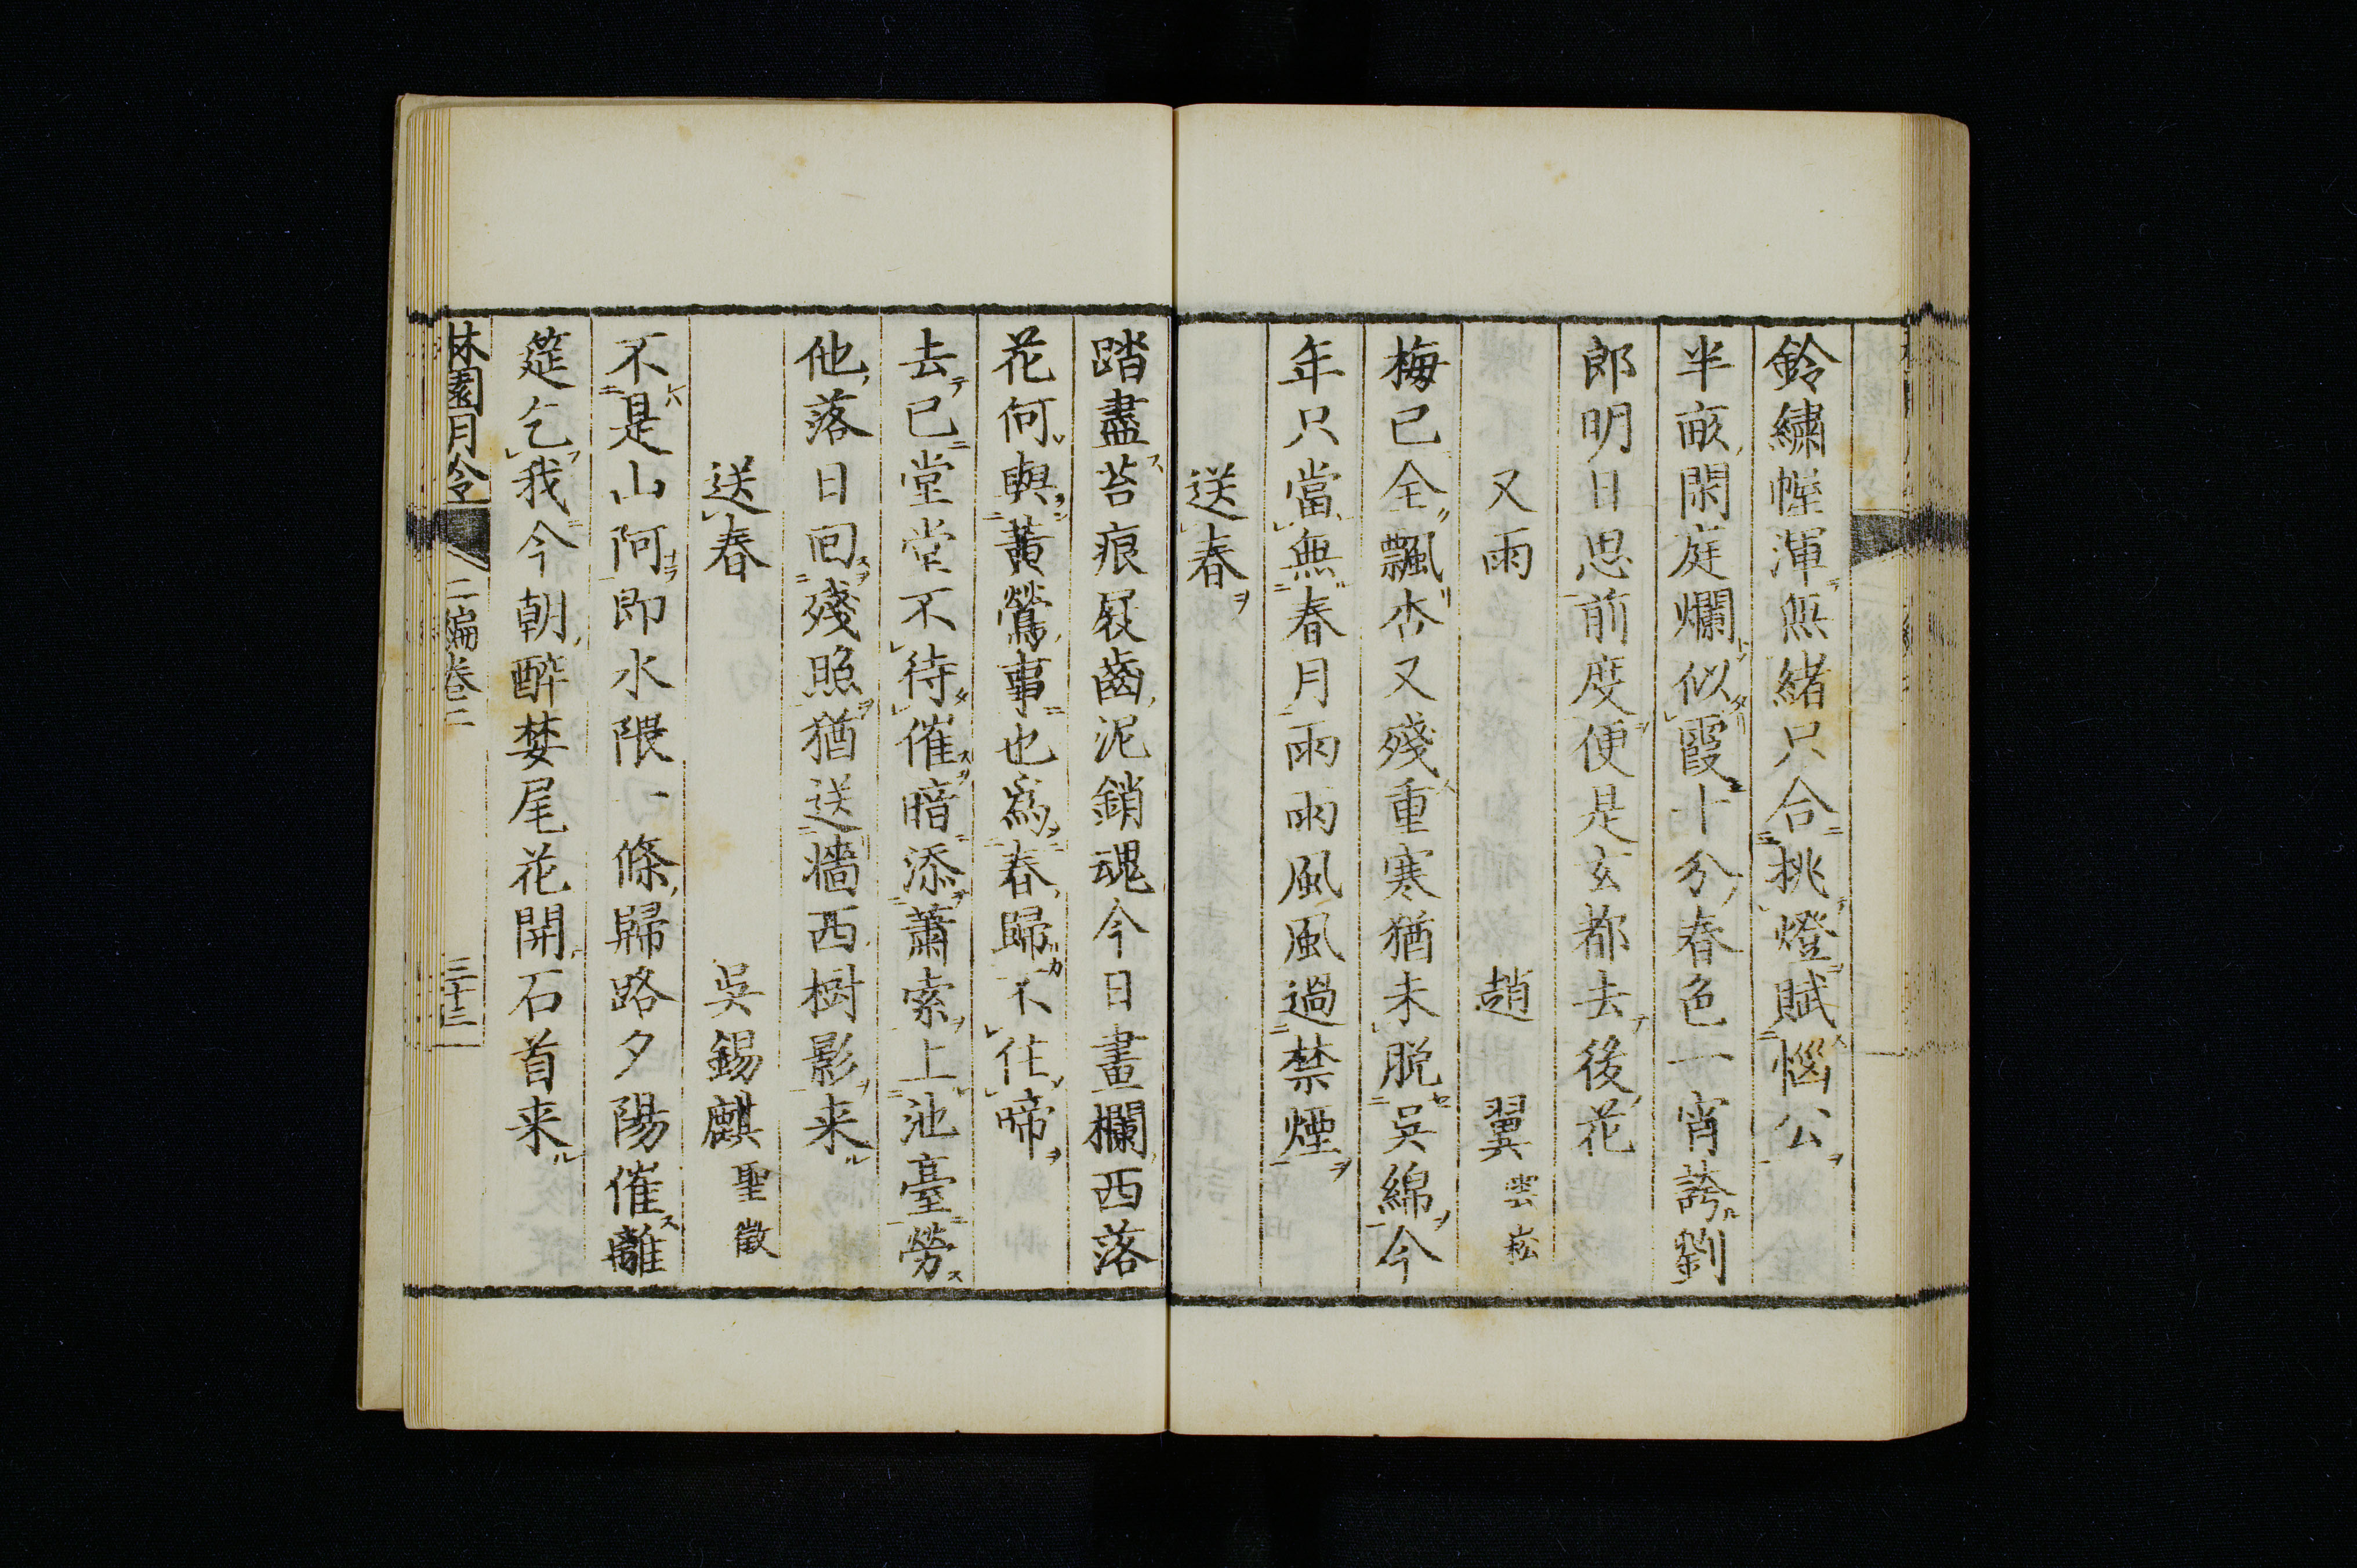 鈴繡幄渾無緒只合挑燈賦惱公
半畝閑庭爛似霞十分春色一宵誇劉
郎明日思前度便是玄都去後花
又雨 趙翼雲崧
梅已全飄杏又殘重寒猶未脱吳綿今
年只當無春月雨雨風風過禁煙
送春
踏盡苔痕屐齒泥銷魂今日畫欄西落
花何與黃鶯事也爲春歸不住啼
去已堂堂不待催暗添蕭索上池臺勞
他落日回殘照猶送牆西樹影来
送春 吳錫麒聖徵
不是山阿即水隈一條歸路夕陽催離
筵乞我今朝醉婪尾花開石首来
林園月令 二編卷二 三十三